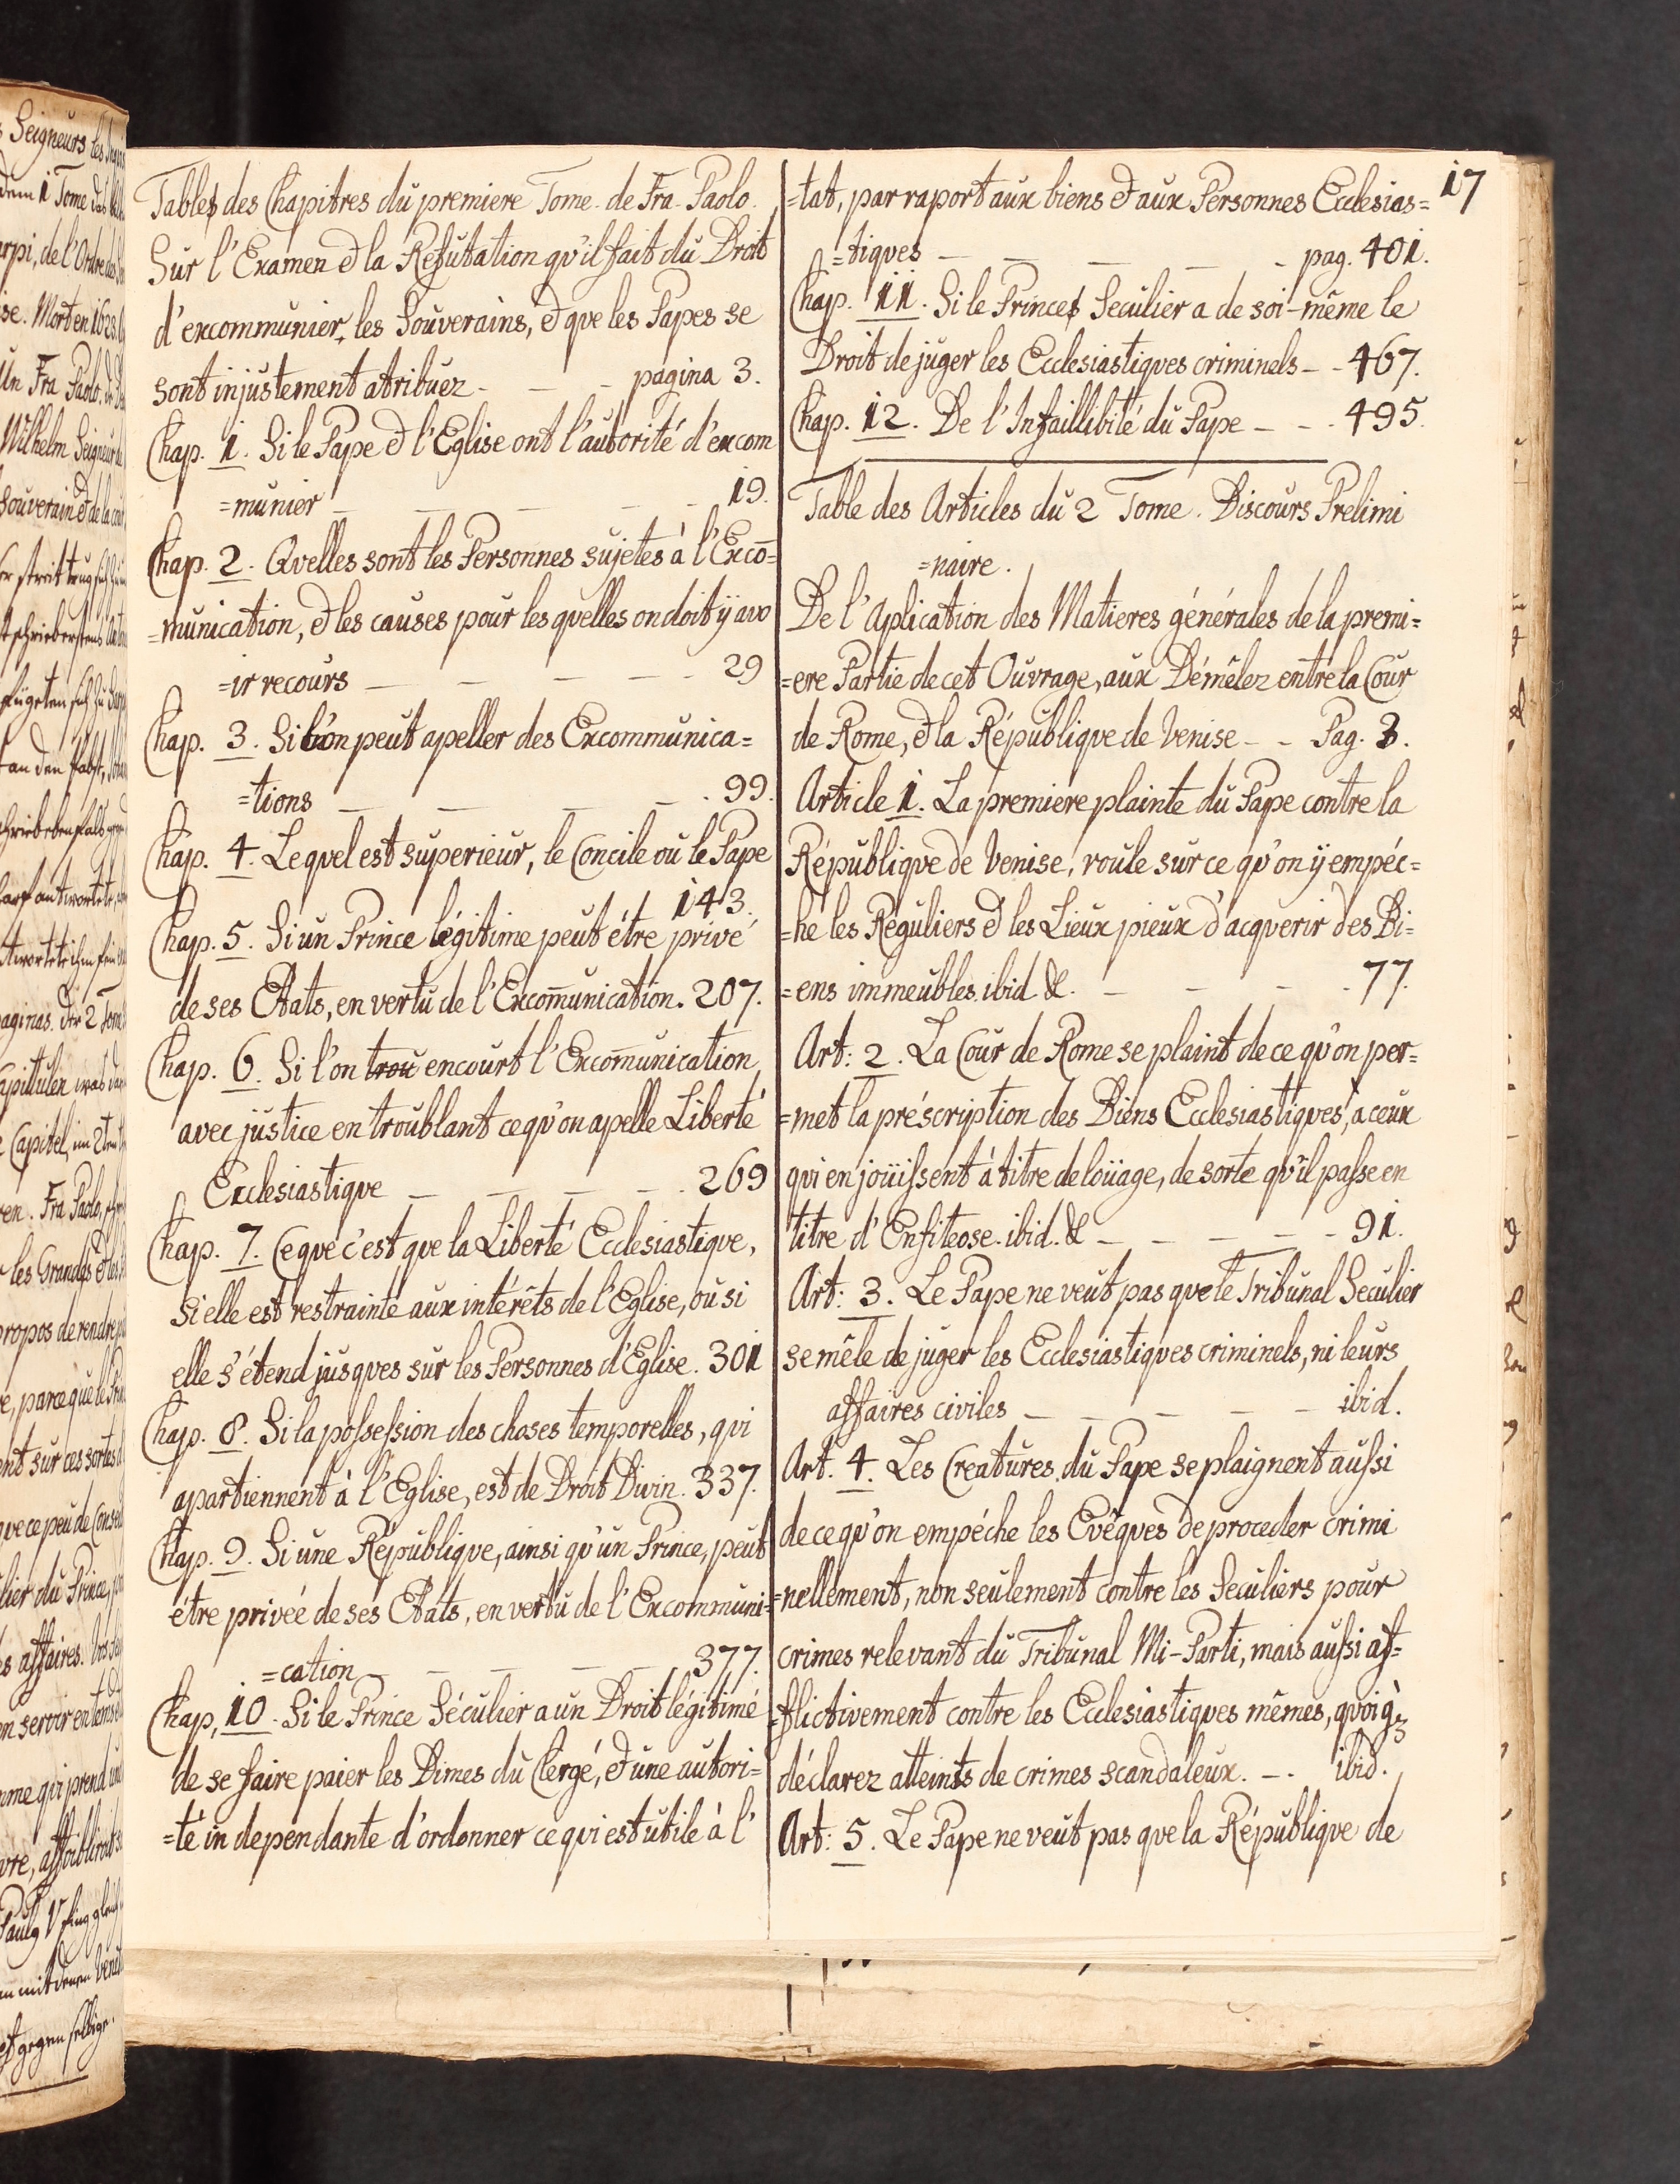 17
Table des Chapitres du premiere Tome de Fra Paolo.
Sur l'Examen & la Refutation qu'il fait du Droit
d'excommunier, les Souverains, & que les Papes se
sont injustement atribuez - - - pagina 3.
Chap. 1. Si le Pape & l'Eglise ont l'autorité d'excom
=munier - - - - - 19.
Chap. 2. Quelles sont les Personnes sujetes à l'Exco̅=
=munication, & les causes pour les quelles on doit ÿ avo
=ir recours - - - - - 29
Chap. 3. Si l'on peut apeller des Excommunica=
=tions - - - - - 99.
Chap. 4. Lequel est superieur, le Concile ou le Pape
143.
Chap. 5. Si un Prince légitime peut étre privé
de ses Etats, en vertu de l'Excom̅unication. 207.
Chap. 6. Si l'on trou encourt l'Excom̅unication
avec justice en troublant ce qu'on apelle Liberté
Ecclesiastique - - - - - 269
Chap. 7. Ce que c'est que la Liberté Ecclesiastique,
si elle est restrainte aux intérêts de l'Eglise, ou si
elle s'étend jusques sur les Personnes d'Eglise. 301
Chap. 8. Si la possession des choses temporelles, qui
apartiennent à l'Eglise, est de Droit Divin. 337.
Chap. 9. Si une République, ainsi qu'un Prince, peut
étre privée de ses Etats, en vertu de l'Excommuni=
=cation - - - - - 377.
Chap, 10. Si le Prince Séculier a un Droit légitimé
de se faire paier les Dimes du Clergé, & une autori=
=té in dependante d'ordonner ce qui est utile à l'
=tat, par raport aux biens & aux Personnes Ecclesias=
=tiques - - - - - pag. 401.
Chap. 11. Si le Prince Seculier a de soi-même le
Droit de juger les Ecclesiastiques criminels - - 467.
Chap. 12. De l'Infaillibité du Pape - - - 495.
Table des Articles du 2 Tome. Discours Prelimi
=naire.
De l'Aplication des Matieres générales de la premi=
=ere Partie de cet Ouvrage, aux Démêlez entre la Cour
de Rome, & la République de Venise - - Pag. 3.
Article 1. La premiere plainte du Pape contre la
République de Venise, roule sur ce qu'on ÿ empéc=
=he les Réguliers & les Lieux pieux d'acquerir des Bi=
=ens immeubles. ibid &. - - - - 77.
Art: 2. La Cour de Rome se plaint de ce qu'on per=
=met la préscription des Biens Ecclesiastiques, a ceux
qui en joüissent à titre de loüage, de sorte qu'il passe en
titre d'Enfiteose. ibid. & - - - - - 91.
Art: 3. Le Pape ne veut pas que le Tribunal Seculier
se mêle de juger les Ecclesiastiques criminels, ni leurs
affaires civiles - - - - - ibid.
Art. 4. Les Creatures du Pape se plaignent aussi
de ce qu'on empéche les Evêques de proceder crimi
=nellement, non seulement contre les Seculiers pour
crimes relevant du Tribunal Mi-Parti, mais aussi af=
=flictivement contre les Ecclesiastiques mêmes, quoiq3
déclarez atteints de crimes scandaleux. - . ibid.
Art: 5. Le Pape ne veut pas que la République de